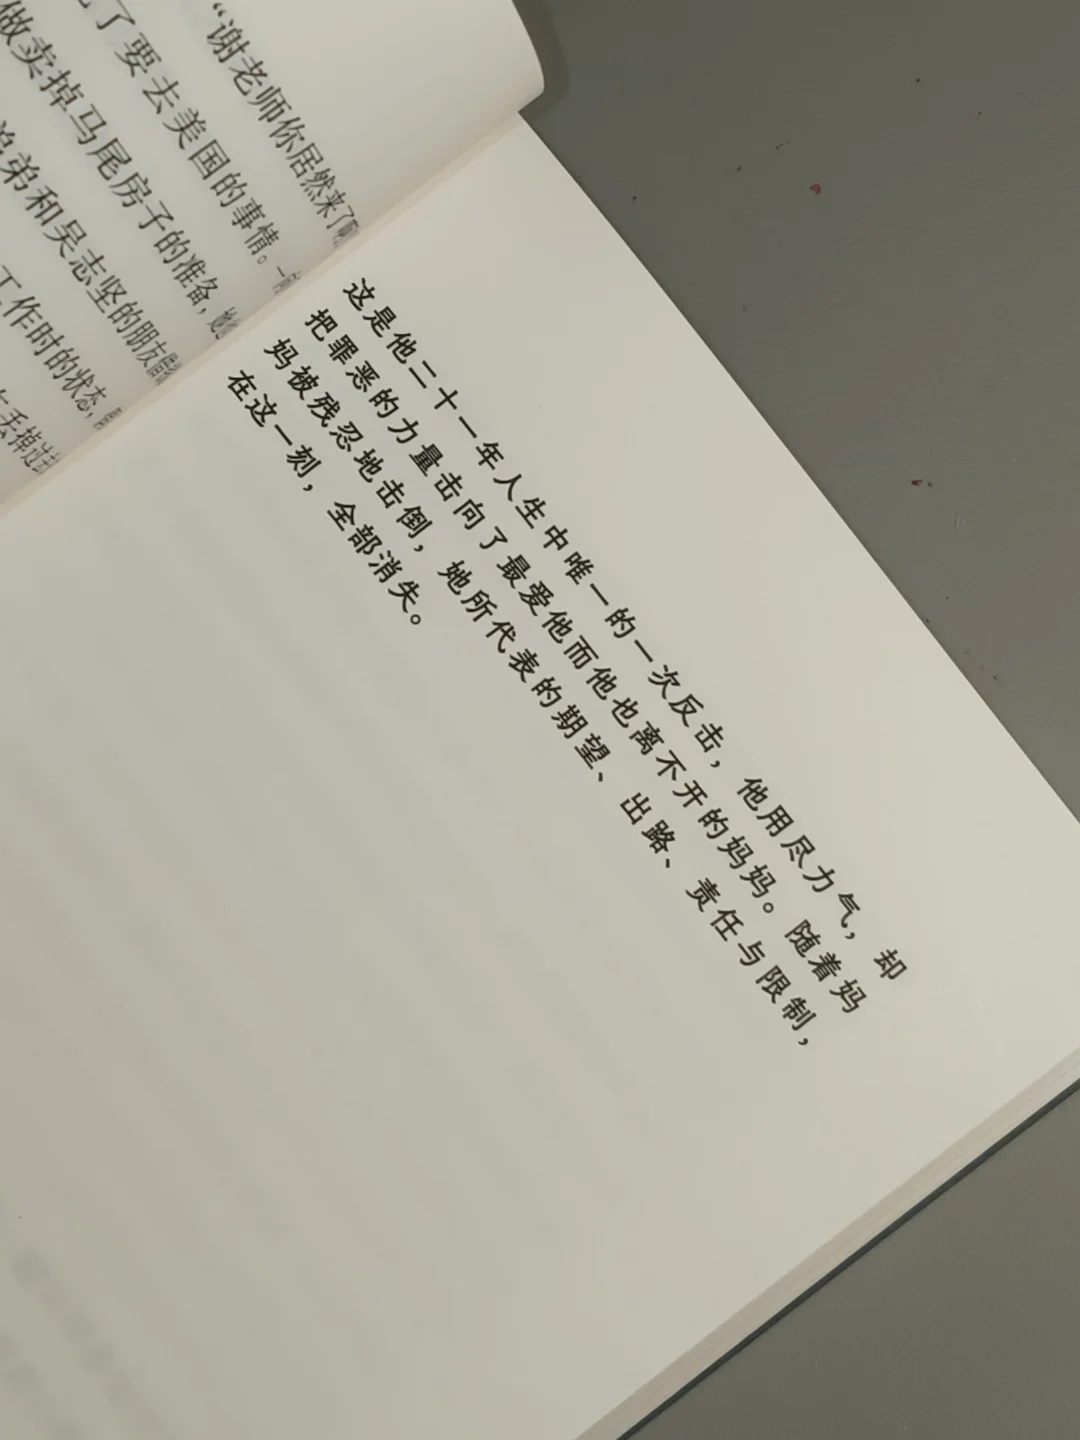 “谢老师你居然来了啊
了要去美国的事情。一
做卖掉马尾房子的准备，她
弟和吴志坚的朋友
工作时的状态，
丢掉过去
这是他二十一年人生中唯一的一次反击，他用尽力气，却
把罪恶的力量击向了最爱他而他也离不开的妈妈。随着妈
妈被残忍地击倒，她所代表的期望、出路、责任与限制，
在这一刻，全部消失。